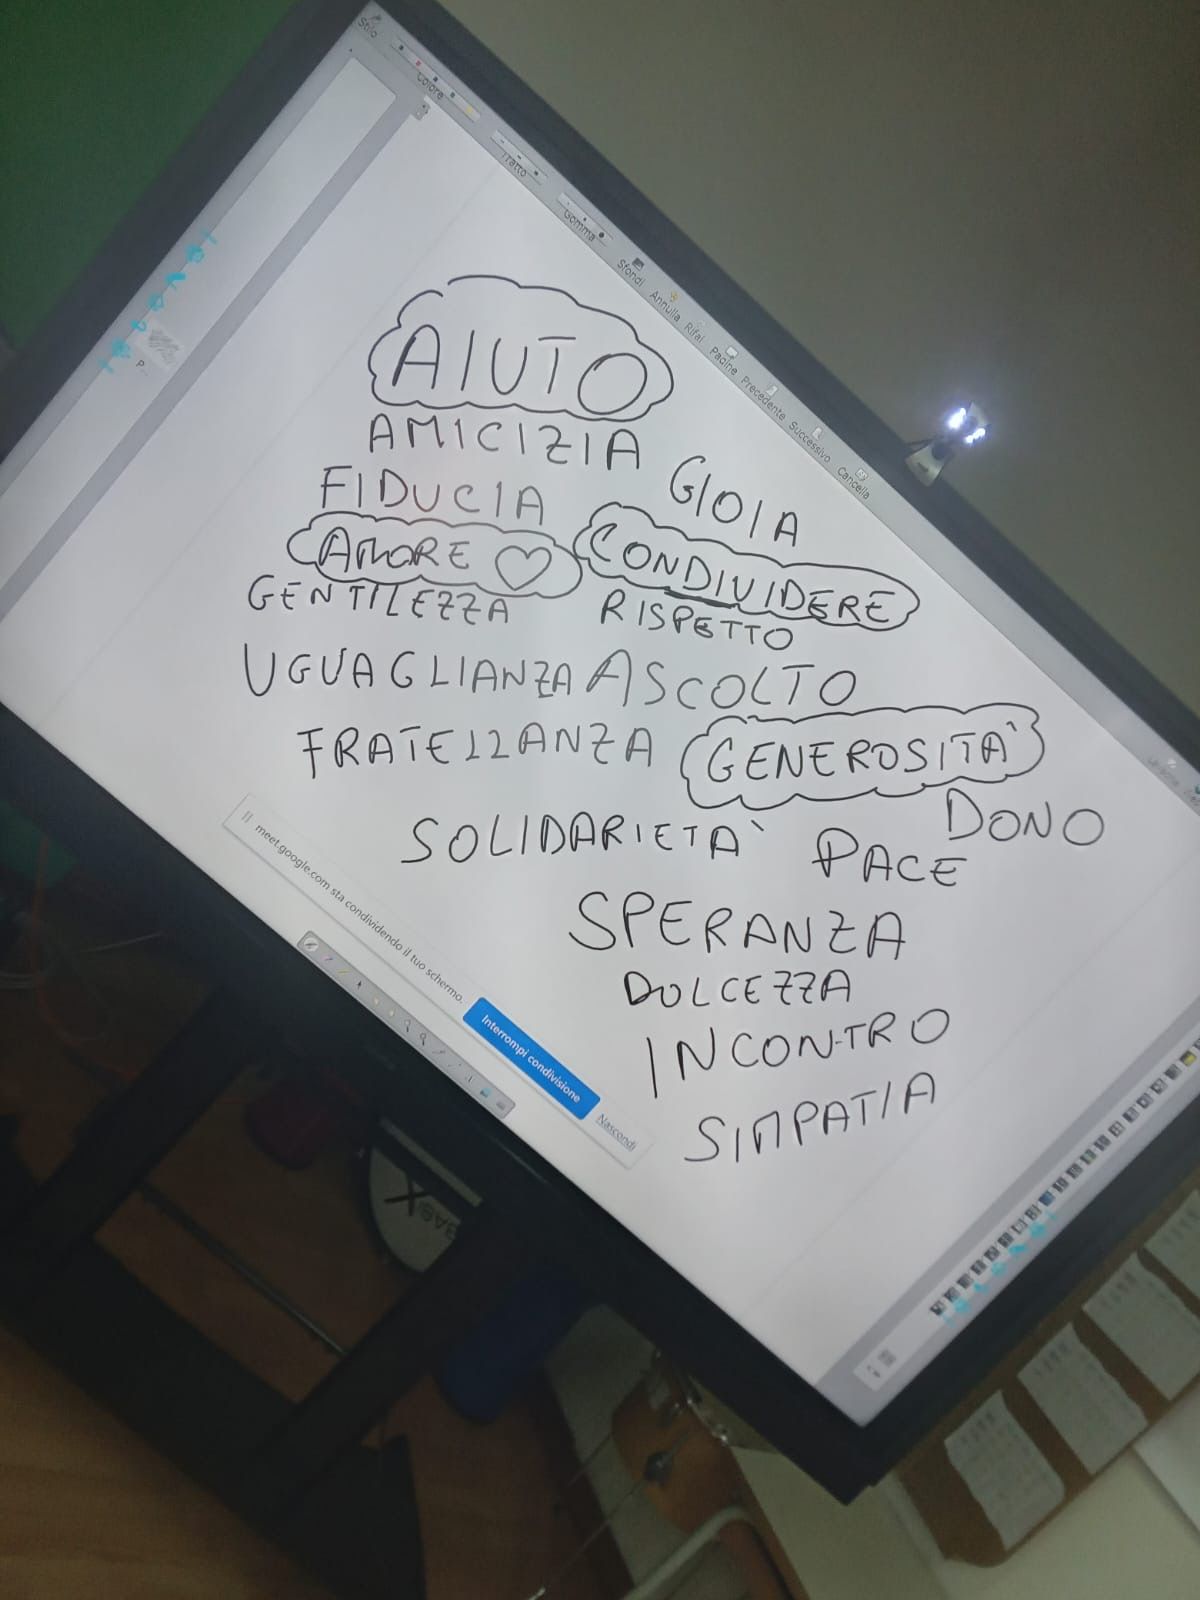 Stilo
Colore
Tratto
Gomma
Sfondi
Annulla
Rifai
Pagine
Precedente
Successivo
Cancella
AIUTO
AMICIZIA
GIOIA
FIDUCIA
AMORE
CONDIVIDERE
GENTILEZZA
RISPETTO
UGUAGLIANZA
ASCOLTO
FRATELLANZA
GENEROSITA'
DONO
SOLIDARIETA'
PACE
SPERANZA
DOLCEZZA
INCONTRO
SIMPATIA
meet.google.com sta condividendo il tuo schermo.
Interrompi condivisione
Nascondi
P...